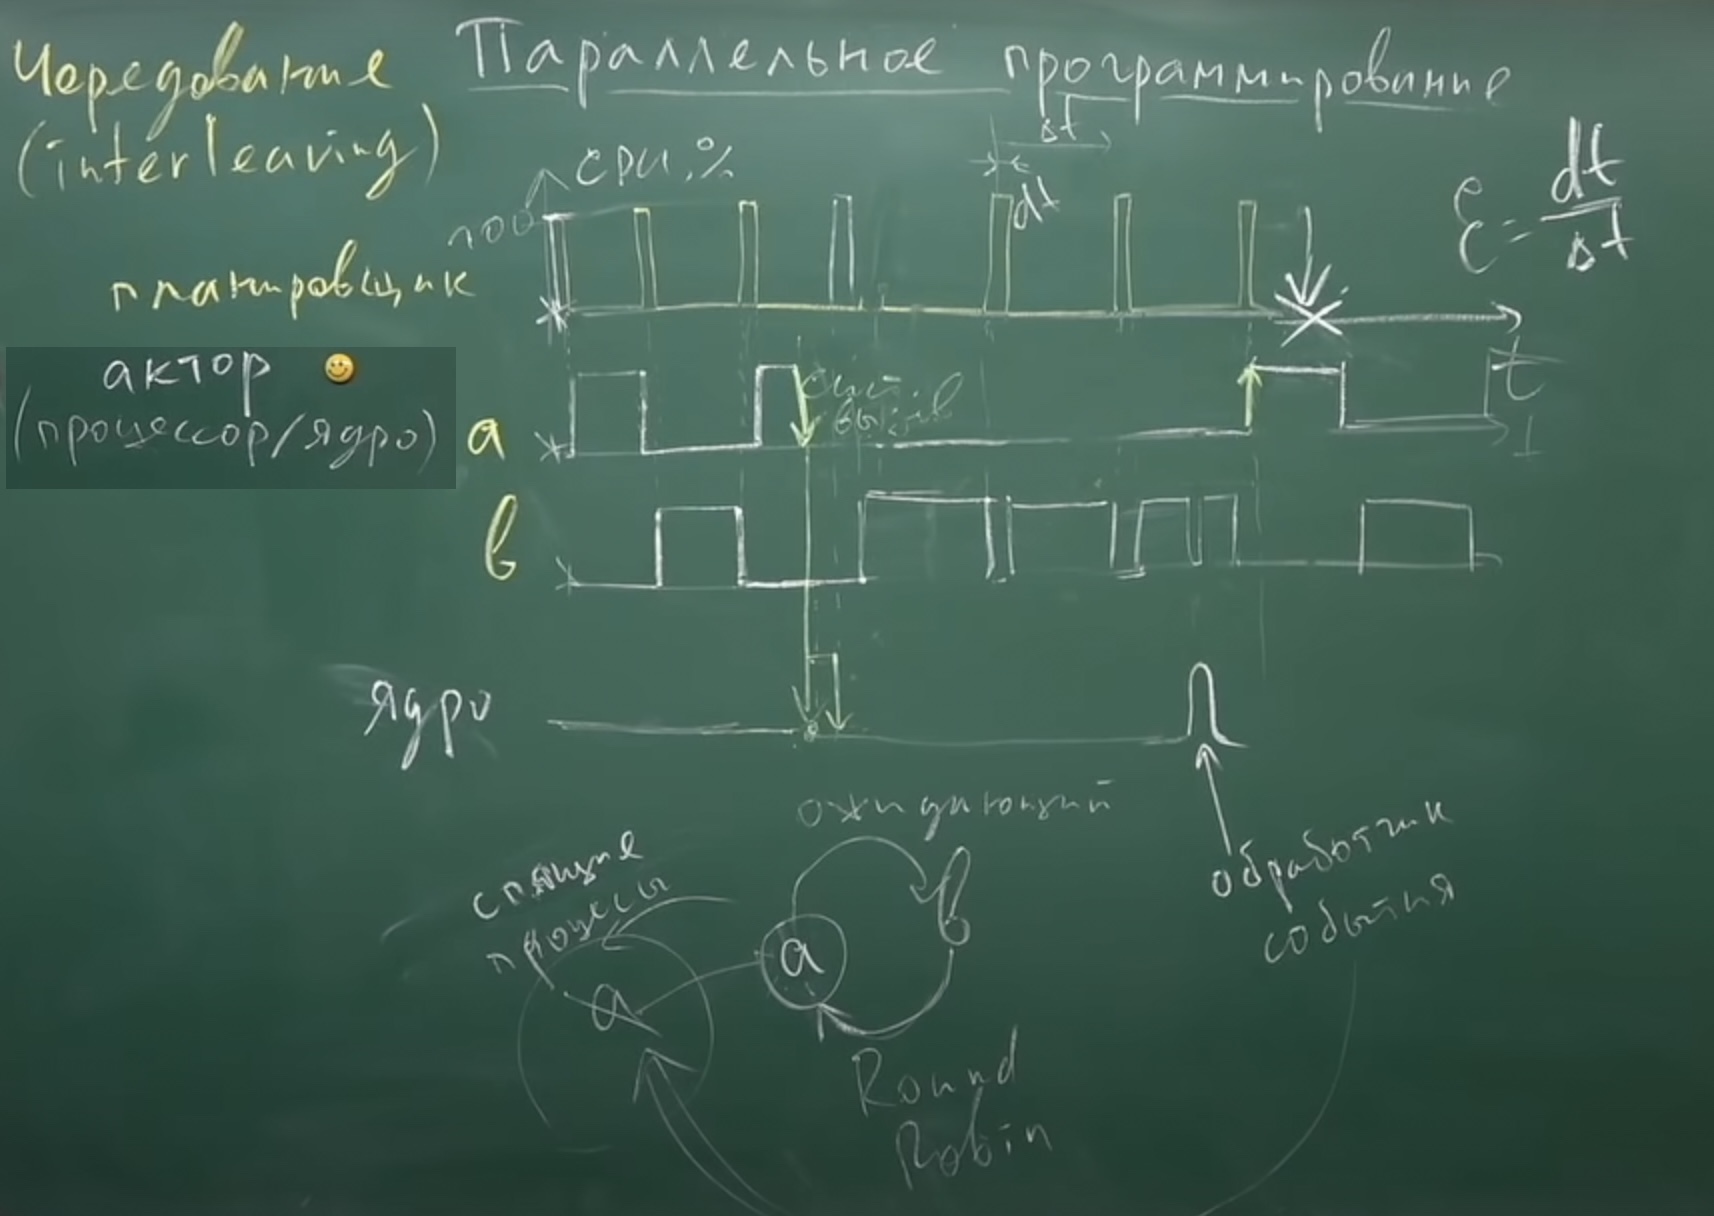 Чередование
(interleaving)
Параллельное программирование
CPU,%
100
Δt
dt
ε = dt/Δt
планировщик
t
актор 🙂
(процессор/ядро)
a
сист.
вызов
t
b
ядро
ожидающий
спящие
процессы
a
a
b
Round
Robin
обработчик
события